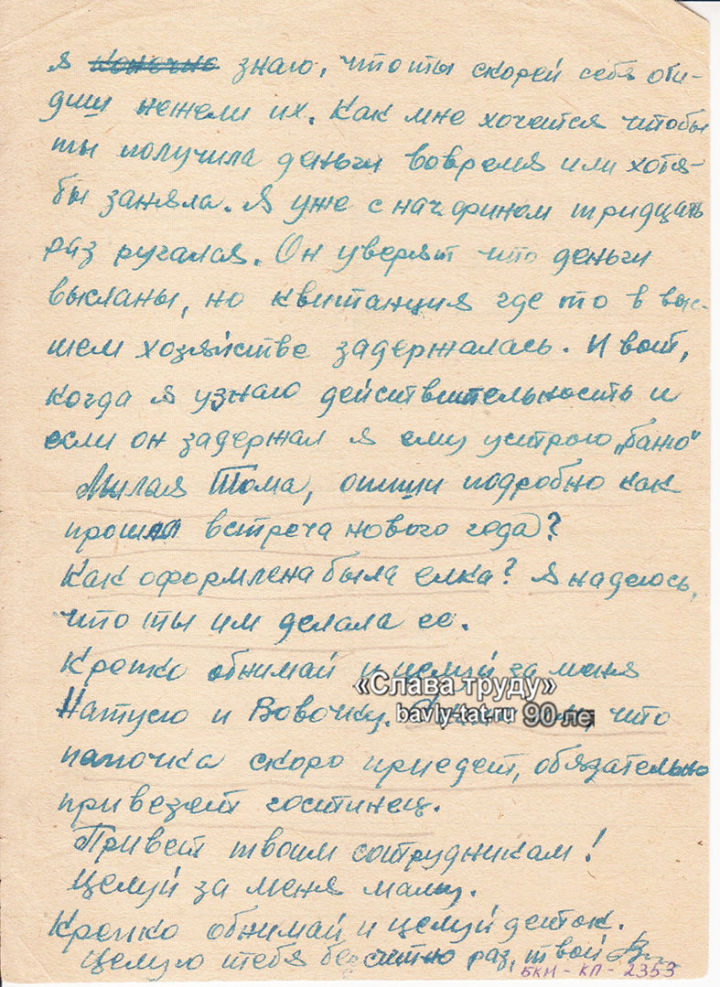 я конечно знаю, что ты скорей себя оби-
диш нежели их. Как мне хочется чтобы
ты получила деньги вовремя или хотя-
бы заняла. Я уже с начфином тридцать
раз ругался. Он уверят что деньги
высланы, но квитанция где то в выс-
шем хозяйстве задержалась. И вот,
когда я узнаю действительность и
если он задержал я ему устрою „баню"
Милая Тома, опиши подробно как
прошла встреча нового года?
Как оформлена была елка? Я надеюсь,
что ты им делала ее.
Крепко обнимай и целуй за меня
«Слава труду»
Натусю и Вовочку. что
bavly-tat.ru 90 лет
папочка скоро приедет, обязательно
привезет гостинец.
Привет твоим сотрудникам!
Целуй за меня маму.
Крепко обнимай и целуй деток.
Целую тебя бесчитно раз, твой В
БКМ-КП-2353